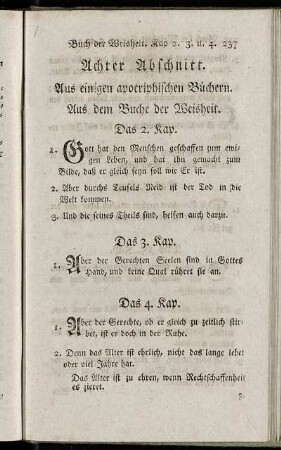 Buch der Weisheit. Kap 2. 3. u. 4. 237
Achter Abschnitt.
Aus einigen apocriphischen Büchern.
Aus dem Buche der Weisheit.
Das 2. Kap.
1. Gott hat den Menschen geschaffen zum ewi-
gen Leben, und hat ihn gemacht zum
Bilde, daß er gleich seyn soll wie Er ist.
2. Aber durchs Teufels Neid ist der Tod in die
Welt kommen.
3. Und die seines Theils sind, helfen auch darzu.
Das 3. Kap.
1. Aber der Gerechten Seelen sind in Gottes
Hand, und keine Qual rühret sie an.
Das 4. Kap.
1. Aber der Gerechte, ob er gleich zu zeitlich stir-
bet, ist er doch in der Ruhe.
2. Denn das Alter ist ehrlich, nicht das lange lebet
oder viel Jahre hat.
Das Alter ist zu ehren, wenn Rechtschaffenheit
es zieret.
3.